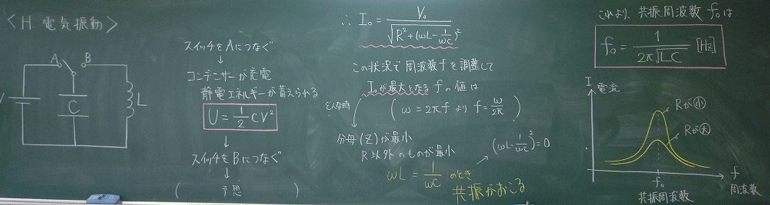 〈H. 電気振動〉
A
B
V
C
L
スイッチをAにつなぐ
↓
コンデンサーが充電
静電エネルギーが蓄えられる
U = 1/2 CV²
↓
スイッチをBにつなぐ
↓
( 予想 )
∴ I₀ = V₀ / √(R² + (ωL - 1/ωC)²)
この状況で周波数fを調整して
I₀が最大となる fの値は
どんな時
( ω = 2πf より f = ω/2π )
分母(Z)が最小
R以外のものが最小
(ωL - 1/ωC)² = 0
ωL = 1/ωC のとき
共振がおこる
これより、共振周波数 f₀は
f₀ = 1 / 2π√LC [Hz]
I
電流
Rが小
Rが大
f
f₀
周波数
共振周波数